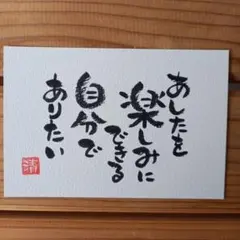 あしたを
楽しみに
できる
自分で
ありたい
清